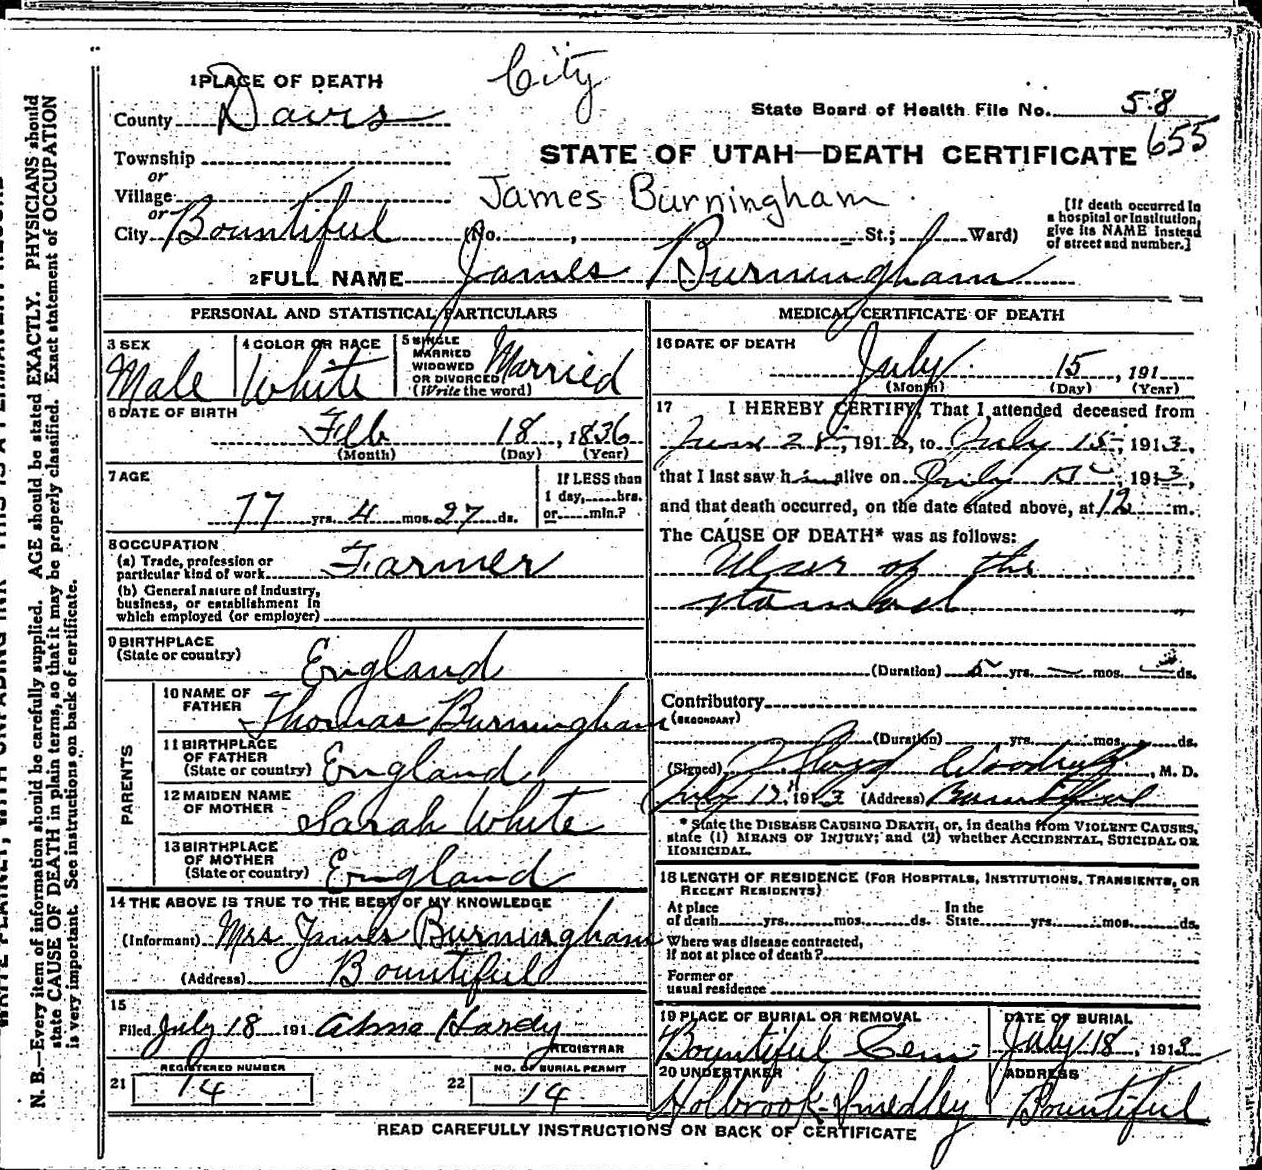 City
1 PLACE OF DEATH
County Davis
State Board of Health File No. 58
655
Township
STATE OF UTAH—DEATH CERTIFICATE
or
Village
James Burningham
or
City Bountiful (No. , St.; Ward)
[If death occurred in a hospital or institution, give its NAME instead of street and number.]
2 FULL NAME James Burningham
PERSONAL AND STATISTICAL PARTICULARS
3 SEX
Male
4 COLOR OR RACE
White
5 SINGLE
MARRIED
WIDOWED
OR DIVORCED
(Write the word)
Married
6 DATE OF BIRTH
Feb 18, 1836
(Month) (Day) (Year)
7 AGE
77 yrs. 4 mos. 27 ds.
If LESS than
1 day, hrs.
or min.?
8 OCCUPATION
(a) Trade, profession or
particular kind of work Farmer
(b) General nature of industry,
business, or establishment in
which employed (or employer)
9 BIRTHPLACE
(State or country) England
PARENTS
10 NAME OF
FATHER Thomas Burningham
11 BIRTHPLACE
OF FATHER
(State or country) England
12 MAIDEN NAME
OF MOTHER Sarah White
13 BIRTHPLACE
OF MOTHER
(State or country) England
14 THE ABOVE IS TRUE TO THE BEST OF MY KNOWLEDGE
(Informant) Mrs James Burningham
(Address) Bountiful
15
Filed July 18 191 Alma Hardy
REGISTRAR
REGISTERED NUMBER
21 14
NO. OF BURIAL PERMIT
22 14
MEDICAL CERTIFICATE OF DEATH
16 DATE OF DEATH
July 15, 191
(Month) (Day) (Year)
17 I HEREBY CERTIFY, That I attended deceased from
June 28, 1913, to July 15, 1913,
that I last saw him alive on July 15, 1913,
and that death occurred, on the date stated above, at 12 m.
The CAUSE OF DEATH* was as follows:
Ulcer of the
stomach
(Duration) 5 yrs. mos. ds.
Contributory
(SECONDARY)
(Duration) yrs. mos. ds.
(Signed) Woodruff, M. D.
July 1913 (Address) Bountiful
* State the DISEASE CAUSING DEATH, or, in deaths from VIOLENT CAUSES,
state (1) MEANS OF INJURY; and (2) whether ACCIDENTAL, SUICIDAL OR
HOMICIDAL.
18 LENGTH OF RESIDENCE (FOR HOSPITALS, INSTITUTIONS, TRANSIENTS, OR
RECENT RESIDENTS)
At place
of death yrs. mos. ds.
In the
State yrs. mos. ds.
Where was disease contracted,
if not at place of death?
Former or
usual residence
19 PLACE OF BURIAL OR REMOVAL
Bountiful Cem
DATE OF BURIAL
July 18, 1913
20 UNDERTAKER
Holbrook-Smedley
ADDRESS
Bountiful
READ CAREFULLY INSTRUCTIONS ON BACK OF CERTIFICATE
N. B.—Every item of information should be carefully supplied. AGE should be stated EXACTLY. PHYSICIANS should
state CAUSE OF DEATH in plain terms, so that it may be properly classified. Exact statement of OCCUPATION
is very important. See instructions on back of certificate.